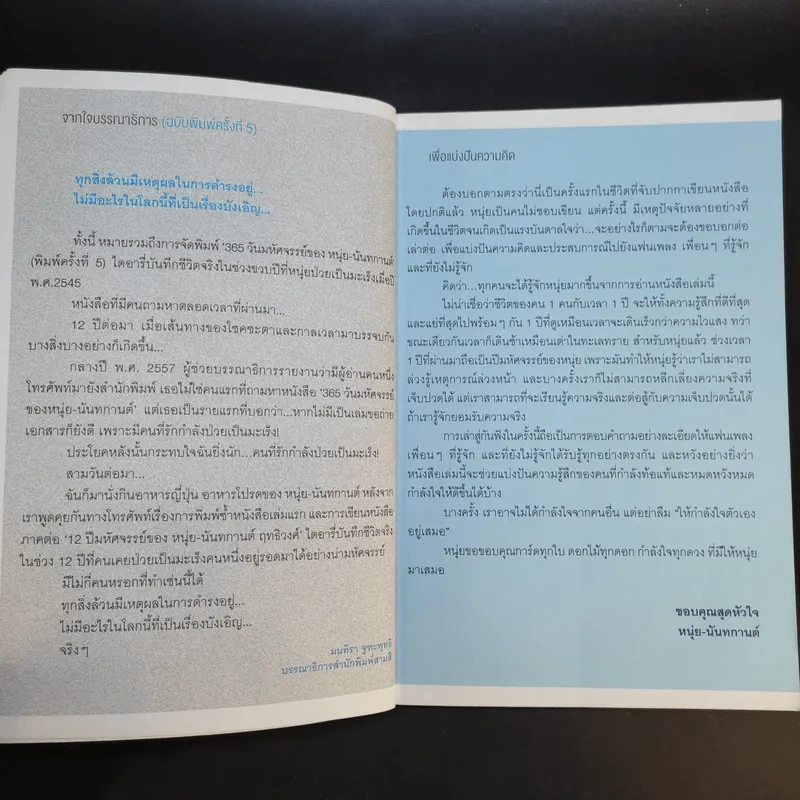 จากใจบรรณาธิการ (ฉบับพิมพ์ครั้งที่ 5)
ทุกสิ่งล้วนมีเหตุผลในการดำรงอยู่...
ไม่มีอะไรในโลกนี้ที่เป็นเรื่องบังเอิญ...
ทั้งนี้ หมายรวมถึงการจัดพิมพ์ ‘365 วันมหัศจรรย์ของ หนุ่ย-นันทกานต์’
(พิมพ์ครั้งที่ 5) ไดอารี่บันทึกชีวิตจริงในช่วงขวบปีที่หนุ่ยป่วยเป็นมะเร็งเมื่อปี
พ.ศ.2545
หนังสือที่มีคนถามหาตลอดเวลาที่ผ่านมา...
12 ปีต่อมา เมื่อเส้นทางของโชคชะตาและกาลเวลามาบรรจบกัน
บางสิ่งบางอย่างก็เกิดขึ้น...
กลางปี พ.ศ. 2557 ผู้ช่วยบรรณาธิการรายงานว่ามีผู้อ่านคนหนึ่ง
โทรศัพท์มายังสำนักพิมพ์ เธอไม่ใช่คนแรกที่ถามหาหนังสือ ‘365 วันมหัศจรรย์
ของหนุ่ย-นันทกานต์’ แต่เธอเป็นรายแรกที่บอกว่า...หากไม่มีเป็นเล่มขอถ่าย
เอกสารก็ยังดี เพราะมีคนที่รักกำลังป่วยเป็นมะเร็ง!
ประโยคหลังนั้นกระทบใจฉันยิ่งนัก...คนที่รักกำลังป่วยเป็นมะเร็ง!
สามวันต่อมา...
ฉันก็มานั่งกินอาหารญี่ปุ่น อาหารโปรดของ หนุ่ย-นันทกานต์ หลังจาก
เราพูดคุยกันทางโทรศัพท์เรื่องการพิมพ์ซ้ำหนังสือเล่มแรก และการเขียนหนังสือ
ภาคต่อ ‘12 ปีมหัศจรรย์ของ หนุ่ย-นันทกานต์ ฤทธิวงศ์’ ไดอารี่บันทึกชีวิตจริง
ในช่วง 12 ปีที่คนเคยป่วยเป็นมะเร็งคนหนึ่งอยู่รอดมาได้อย่างน่ามหัศจรรย์
มีไม่กี่คนหรอกที่ทำเช่นนี้ได้
ทุกสิ่งล้วนมีเหตุผลในการดำรงอยู่...
ไม่มีอะไรในโลกนี้ที่เป็นเรื่องบังเอิญ...
จริงๆ
มนทิรา จูฑะพุทธิ
บรรณาธิการสำนักพิมพ์สามสี
เพื่อแบ่งปันความคิด
ต้องบอกตามตรงว่านี่เป็นครั้งแรกในชีวิตที่จับปากกาเขียนหนังสือ
โดยปกติแล้ว หนุ่ยเป็นคนไม่ชอบเขียน แต่ครั้งนี้ มีเหตุปัจจัยหลายอย่างที่
เกิดขึ้นในชีวิตจนเกิดเป็นแรงบันดาลใจว่า...จะอย่างไรก็ตามจะต้องขอบอกต่อ
เล่าต่อ เพื่อแบ่งปันความคิดและประสบการณ์ไปยังแฟนเพลง เพื่อนๆ ที่รู้จัก
และที่ยังไม่รู้จัก
คิดว่า...ทุกคนจะได้รู้จักหนุ่ยมากขึ้นจากการอ่านหนังสือเล่มนี้
ไม่น่าเชื่อว่าชีวิตของคน 1 คนกับเวลา 1 ปี จะให้ทั้งความรู้สึกที่ดีที่สุด
และแย่ที่สุดไปพร้อมๆ กัน 1 ปีที่ดูเหมือนเวลาจะเดินเร็วกว่าความไวแสง ทว่า
ขณะเดียวกันเวลาก็เดินช้าเหมือนเต่าในทะเลทราย สำหรับหนุ่ยแล้ว ช่วงเวลา
1 ปีที่ผ่านมาถือเป็นปีมหัศจรรย์ของหนุ่ย เพราะมันทำให้หนุ่ยรู้ว่าเราไม่สามารถ
ล่วงรู้เหตุการณ์ล่วงหน้า และบางครั้งเราก็ไม่สามารถหลีกเลี่ยงความจริงที่
เจ็บปวดได้ แต่เราสามารถที่จะเรียนรู้ความจริงและต่อสู้กับความเจ็บปวดนั้นได้
ถ้าเรารู้จักยอมรับความจริง
การเล่าสู่กันฟังในครั้งนี้ถือเป็นการตอบคำถามอย่างละเอียดให้แฟนเพลง
เพื่อนๆ ที่รู้จัก และที่ยังไม่รู้จักได้รับรู้ทุกอย่างตรงกัน และหวังอย่างยิ่งว่า
หนังสือเล่มนี้จะช่วยแบ่งปันความรู้สึกของคนที่กำลังท้อแท้และหมดหวังหมด
กำลังใจให้ดีขึ้นได้บ้าง
บางครั้ง เราอาจไม่ได้กำลังใจจากคนอื่น แต่อย่าลืม “ให้กำลังใจตัวเอง
อยู่เสมอ”
หนุ่ยขอขอบคุณการ์ดทุกใบ ดอกไม้ทุกดอก กำลังใจทุกดวง ที่มีให้หนุ่ย
มาเสมอ
ขอบคุณสุดหัวใจ
หนุ่ย-นันทกานต์